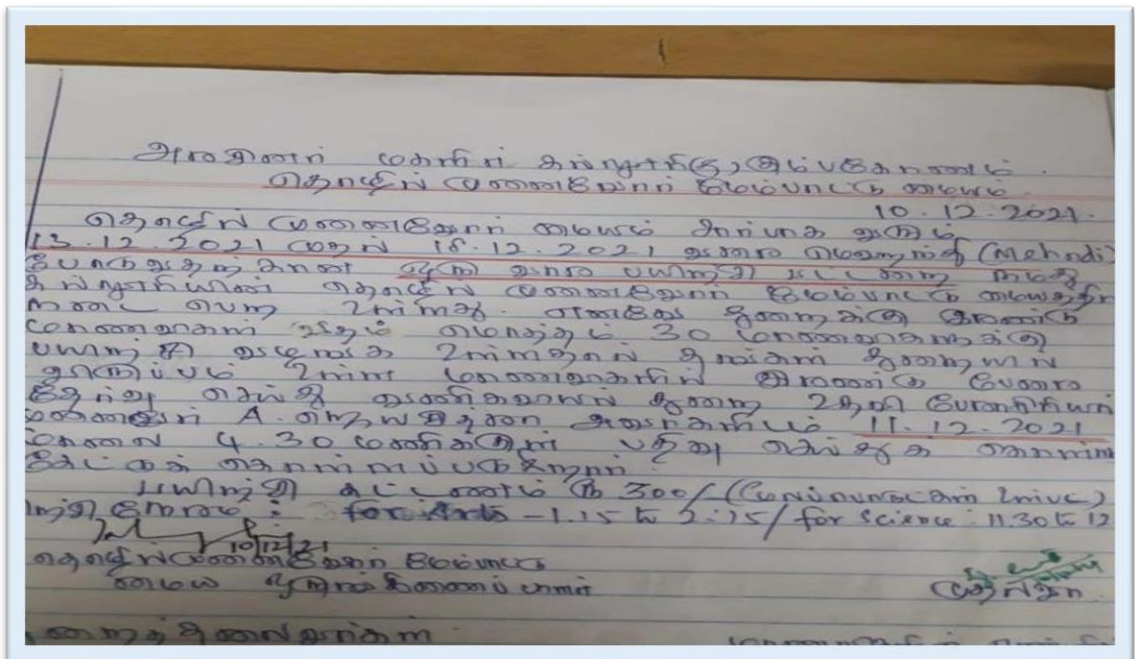 அரசினர் மகளிர் கல்லூரி, கும்பகோணம்.
தொழில் முனைவோர் மேம்பாட்டு மையம்.
10.12.2021.
தொழில் முனைவோர் மையம் சார்பாக வரும்
13.12.2021 முதல் 18.12.2021 வரை மெஹந்தி (Mehndi)
போடுவதற்கான ஒரு வார பயிற்சி பட்டறை நமது
கல்லூரியின் தொழில் முனைவோர் மேம்பாட்டு மையத்தில்
நடைபெற உள்ளது. எனவே துறைக்கு இரண்டு
மாணவிகள் வீதம் மொத்தம் 30 மாணவிகளுக்கு
பயிற்சி வழங்க உள்ளதால் தங்கள் துறையில்
விருப்பம் உள்ள மாணவிகளில் இரண்டு பேரை
தேர்வு செய்து வணிகவியல் துறை உதவி பேராசிரியர்
A. அவர்களிடம் 11.12.2021
மாலை 4.30 மணிக்குள் பதிவு செய்துக் கொள்ள
கேட்டுக் கொள்ளப்படுகிறார்.
பயிற்சி கட்டணம் ரூ 300/- (மூலப்பொருட்கள் உள்பட)
நேரம் : for Arts - 1.15 to 2.15/ for Science : 11.30 to 12
10/12/21
தொழில் முனைவோர் மேம்பாட்டு
மைய ஒருங்கிணைப்பாளர்
முதல்வர்
துறைத்தலைவர்கள்